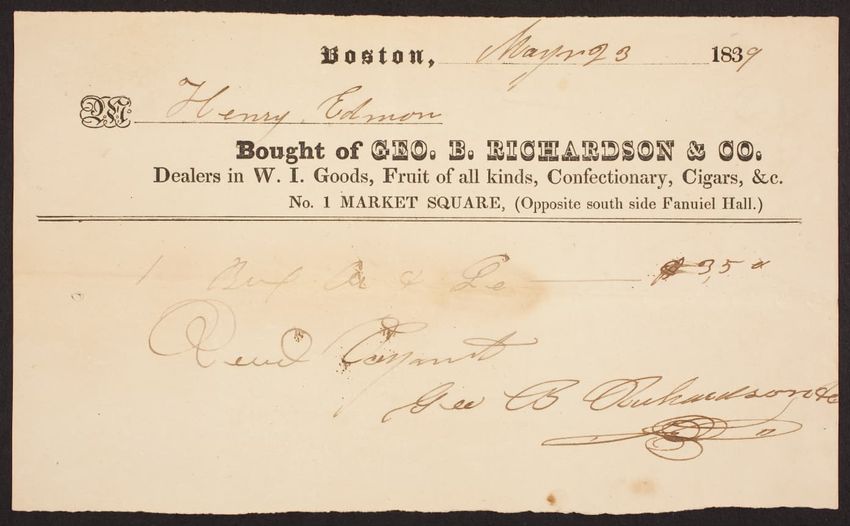 Boston, May 23 1839
Mr. Henry Edmon
Bought of GEO. B. RICHARDSON & CO.
Dealers in W. I. Goods, Fruit of all kinds, Confectionary, Cigars, &c.
No. 1 MARKET SQUARE, (Opposite south side Fanuiel Hall.)
1 Box & Le $3,50
Recd Payment
Geo B Richardson & Co